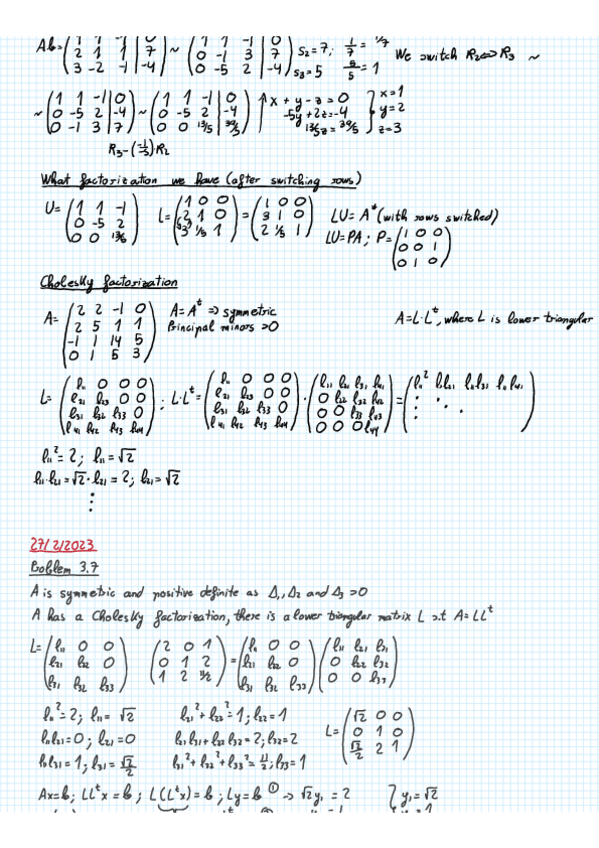 Ab = ( 1 1 -1 | 0 ; 2 1 1 | 7 ; 3 -2 -1 | -4 ) ~ ( 1 1 -1 | 0 ; 0 -1 3 | 7 ; 0 -5 2 | -4 ) s₂=7; s₃=5 5/5 = 1 We switch R₂⇔R₃ ~
~ ( 1 1 -1 | 0 ; 0 -5 2 | -4 ; 0 -1 3 | 7 ) ~ ( 1 1 -1 | 0 ; 0 -5 2 | -4 ; 0 0 13/5 | 39/5 ) ↑ x + y - z = 0 ; -5y + 2z = -4 ; 13/5 z = 39/5 } x=1 ; y=2 ; z=3
R₃-(-1/5)·R₂
What factorization we have (after switching rows)
U = ( 1 1 -1 ; 0 -5 2 ; 0 0 13/5 ) L = ( 1 0 0 ; 1 0 ; 1/5 1 ) = ( 1 0 0 ; 3 1 0 ; 2 1/5 1 ) LU = A* (with rows switched)
LU = PA ; P = ( 1 0 0 ; 0 0 1 ; 0 1 0 )
Cholesky factorization
A = ( 2 2 -1 0 ; 2 5 1 1 ; -1 1 14 5 ; 0 1 5 3 ) A = Aᵗ ⇒ symmetric A = L·Lᵗ, where L is lower triangular
Principal minors >0
L = ( l₁₁ 0 0 0 ; l₂₁ l₂₂ 0 0 ; l₃₁ l₃₂ l₃₃ 0 ; l₄₁ l₄₂ l₄₃ l₄₄ ) ; L·Lᵗ = ( l₁₁ 0 0 0 ; l₂₁ l₂₂ 0 0 ; l₃₁ l₃₂ l₃₃ 0 ; l₄₁ l₄₂ l₄₃ l₄₄ ) · ( l₁₁ l₂₁ l₃₁ l₄₁ ; 0 l₂₂ l₃₂ l₄₂ ; 0 0 l₃₃ l₄₃ ; 0 0 0 l₄₄ ) = ( l₁₁² l₁₁l₂₁ l₁₁l₃₁ l₁₁l₄₁ ; ⋮ ⋱ )
l₁₁² = 2 ; l₁₁ = √2
l₁₁·l₂₁ = √2·l₂₁ = 2 ; l₂₁ = √2
⋮
27/2/2023
Problem 3.7
A is symmetric and positive definite as Δ₁, Δ₂ and Δ₃ >0
A has a Cholesky factorization, there is a lower triangular matrix L s.t A = LLᵗ
L = ( l₁₁ 0 0 ; l₂₁ l₂₂ 0 ; l₃₁ l₃₂ l₃₃ ) ( 2 0 1 ; 0 1 2 ; 1 2 11/2 ) = ( l₁₁ 0 0 ; l₂₁ l₂₂ 0 ; l₃₁ l₃₂ l₃₃ ) ( l₁₁ l₂₁ l₃₁ ; 0 l₂₂ l₃₂ ; 0 0 l₃₃ )
l₁₁² = 2 ; l₁₁ = √2 l₂₁² + l₂₂² = 1 ; l₂₂ = 1
l₁₁l₂₁ = 0 ; l₂₁ = 0 l₂₁l₃₁ + l₂₂l₃₂ = 2 ; l₃₂ = 2 L = ( √2 0 0 ; 0 1 0 ; √2/2 2 1 )
l₁₁l₃₁ = 1 ; l₃₁ = √2/2 l₃₁² + l₃₂² + l₃₃² = 11/2 ; l₃₃ = 1
Ax = b ; LLᵗx = b ; L(Lᵗx) = b ; Ly = b ① ⇒ √2y₁ = 2 { y₁ = √2